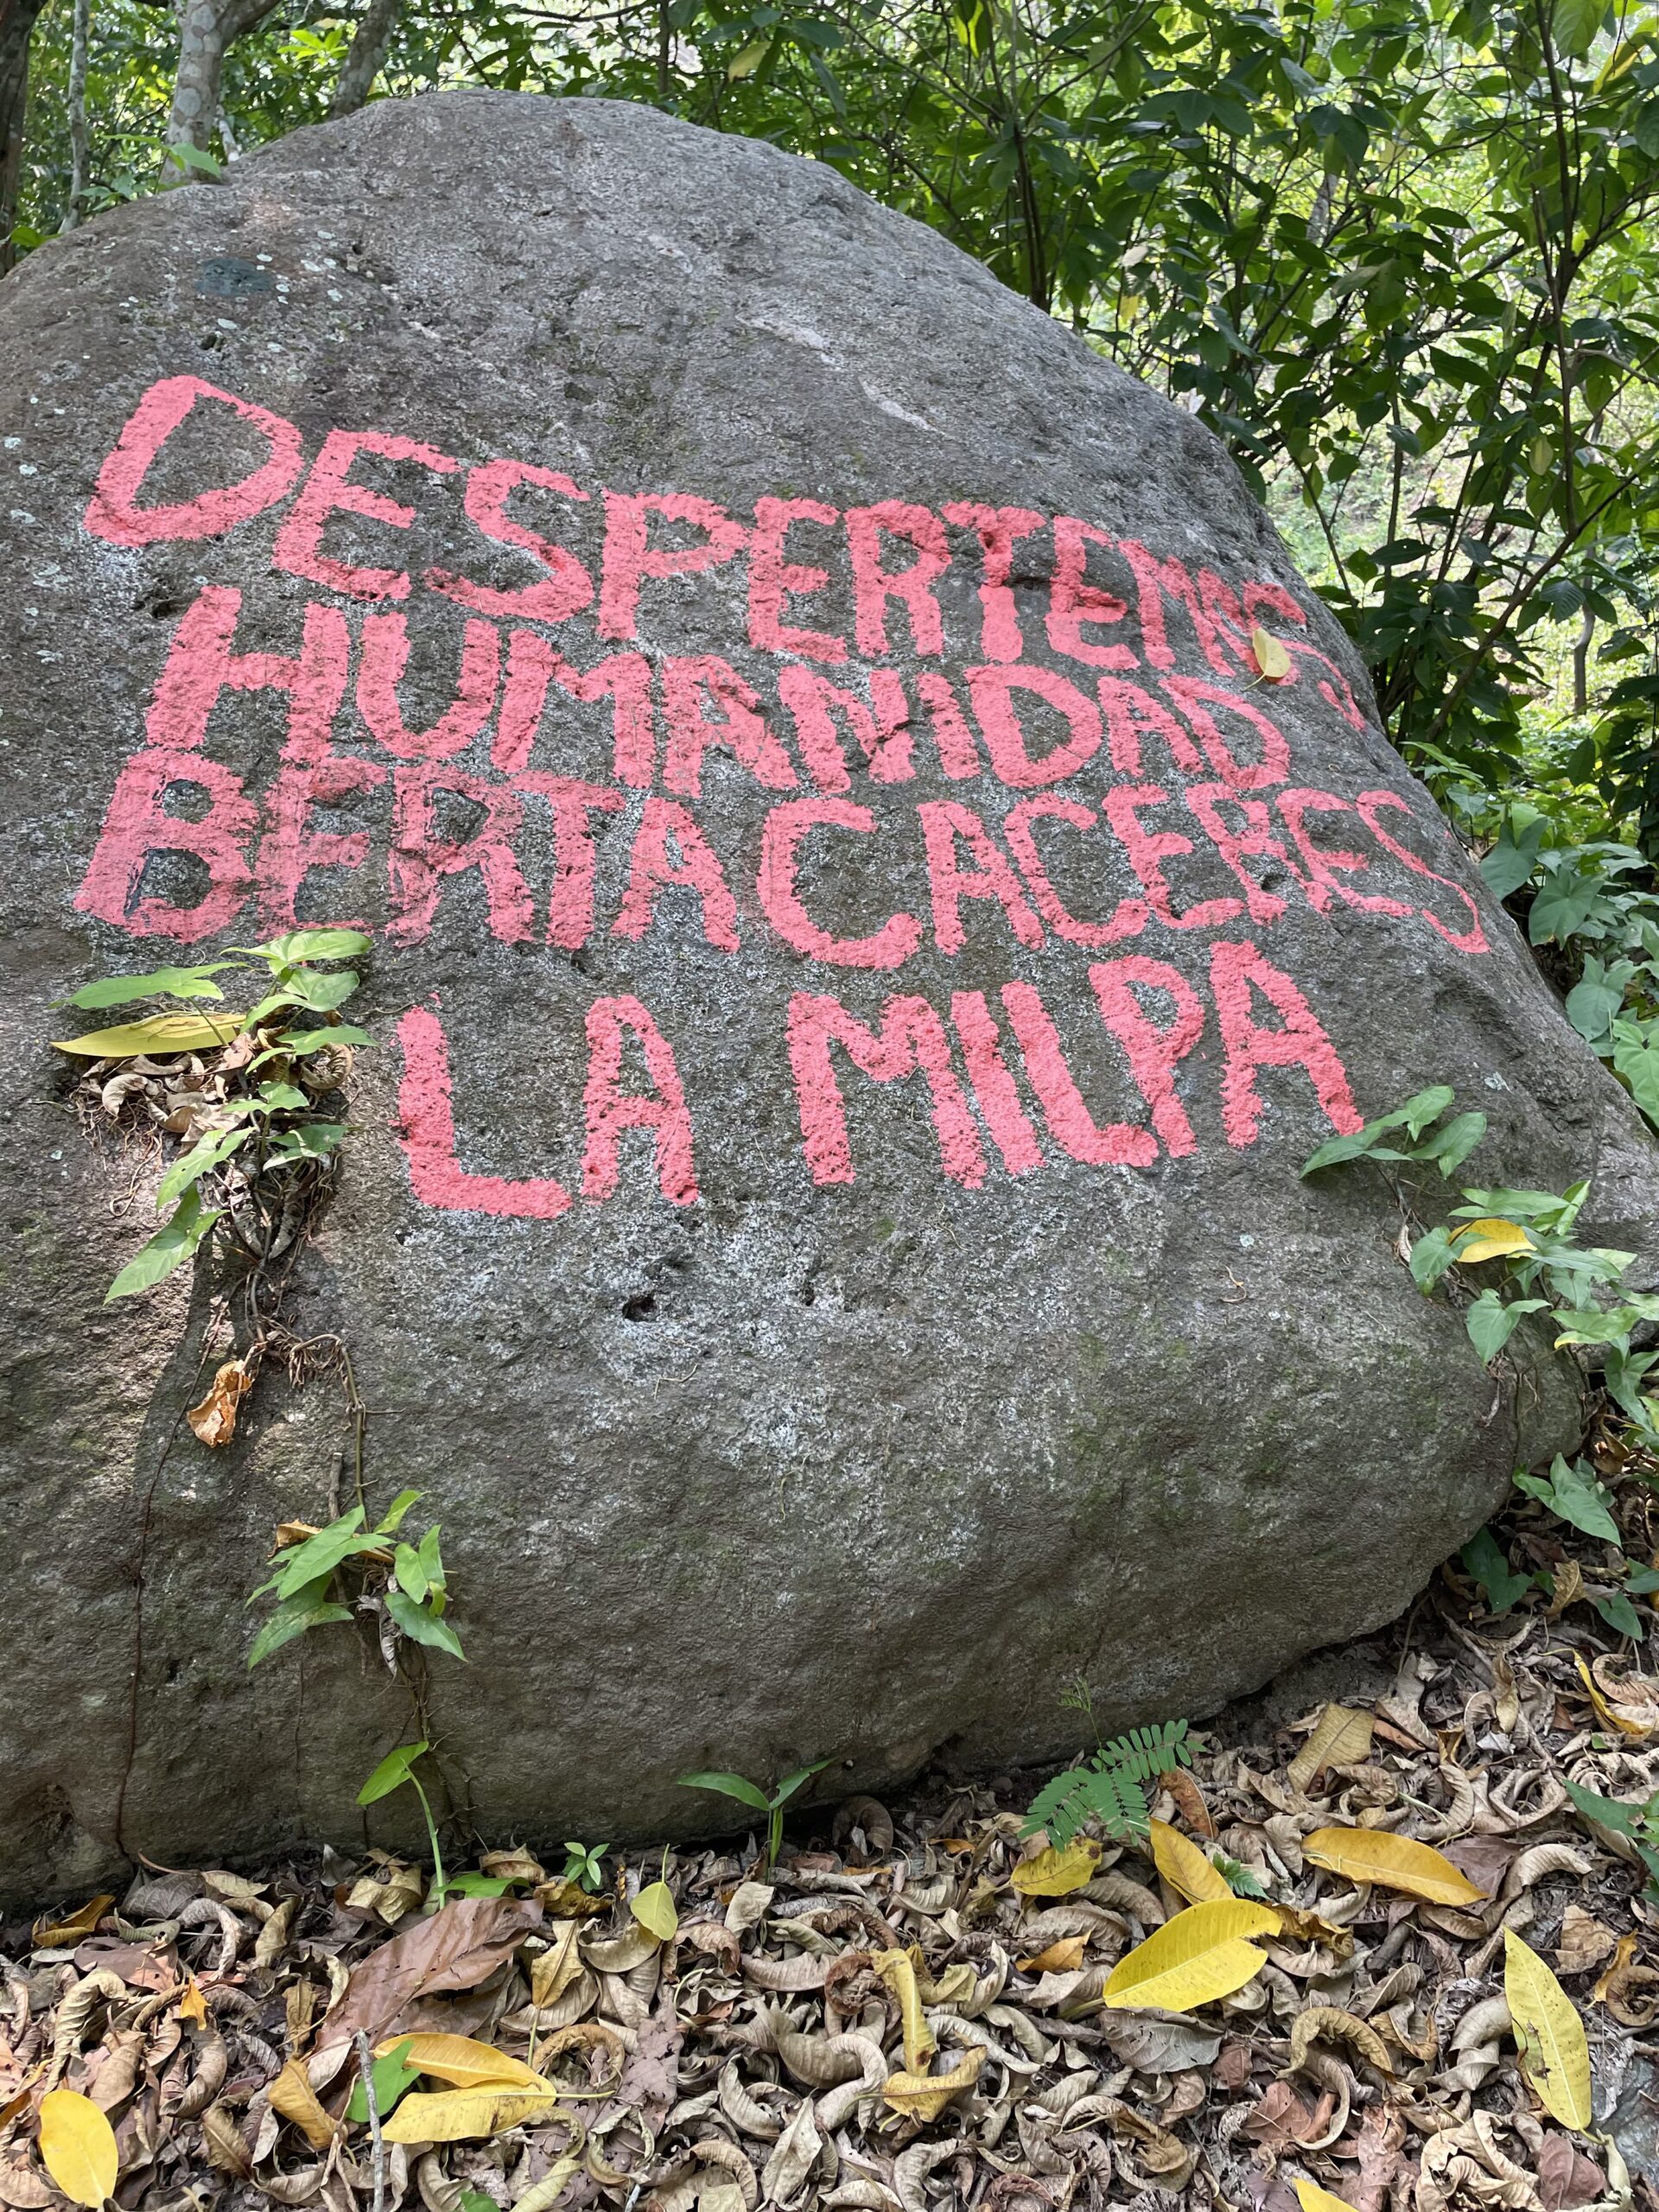 DESPERTEMOS
HUMANIDAD
BERTA CACERES
LA MILPA